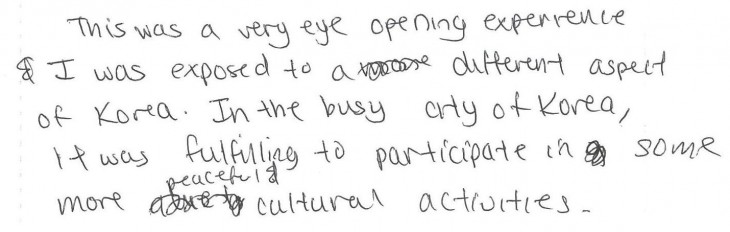 This was a very eye opening experience
& I was exposed to a different aspect
of Korea. In the busy city of Korea,
it was fulfilling to participate in some
peaceful &
more cultural activities.